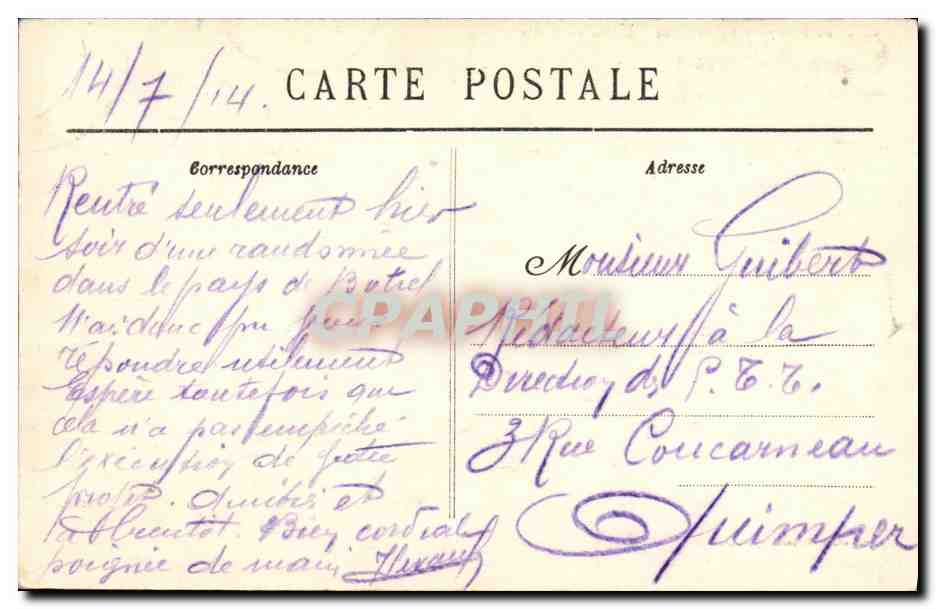 14/7/14.
CARTE POSTALE
Correspondance
Rentré seulement hier
soir d'une randonnée
dans le pays de Botrel
N'ai donc pu
répondre utilement
Espère toutefois que
cela n'a pas empêché
l'exécution de
projet. et
à bientôt. Bien cordiale
poignée de main
Adresse
Monsieur Guibert
Rédacteur à la
Direction des P.T.T.
3 Rue Concarneau
Quimper
CPAPHIL